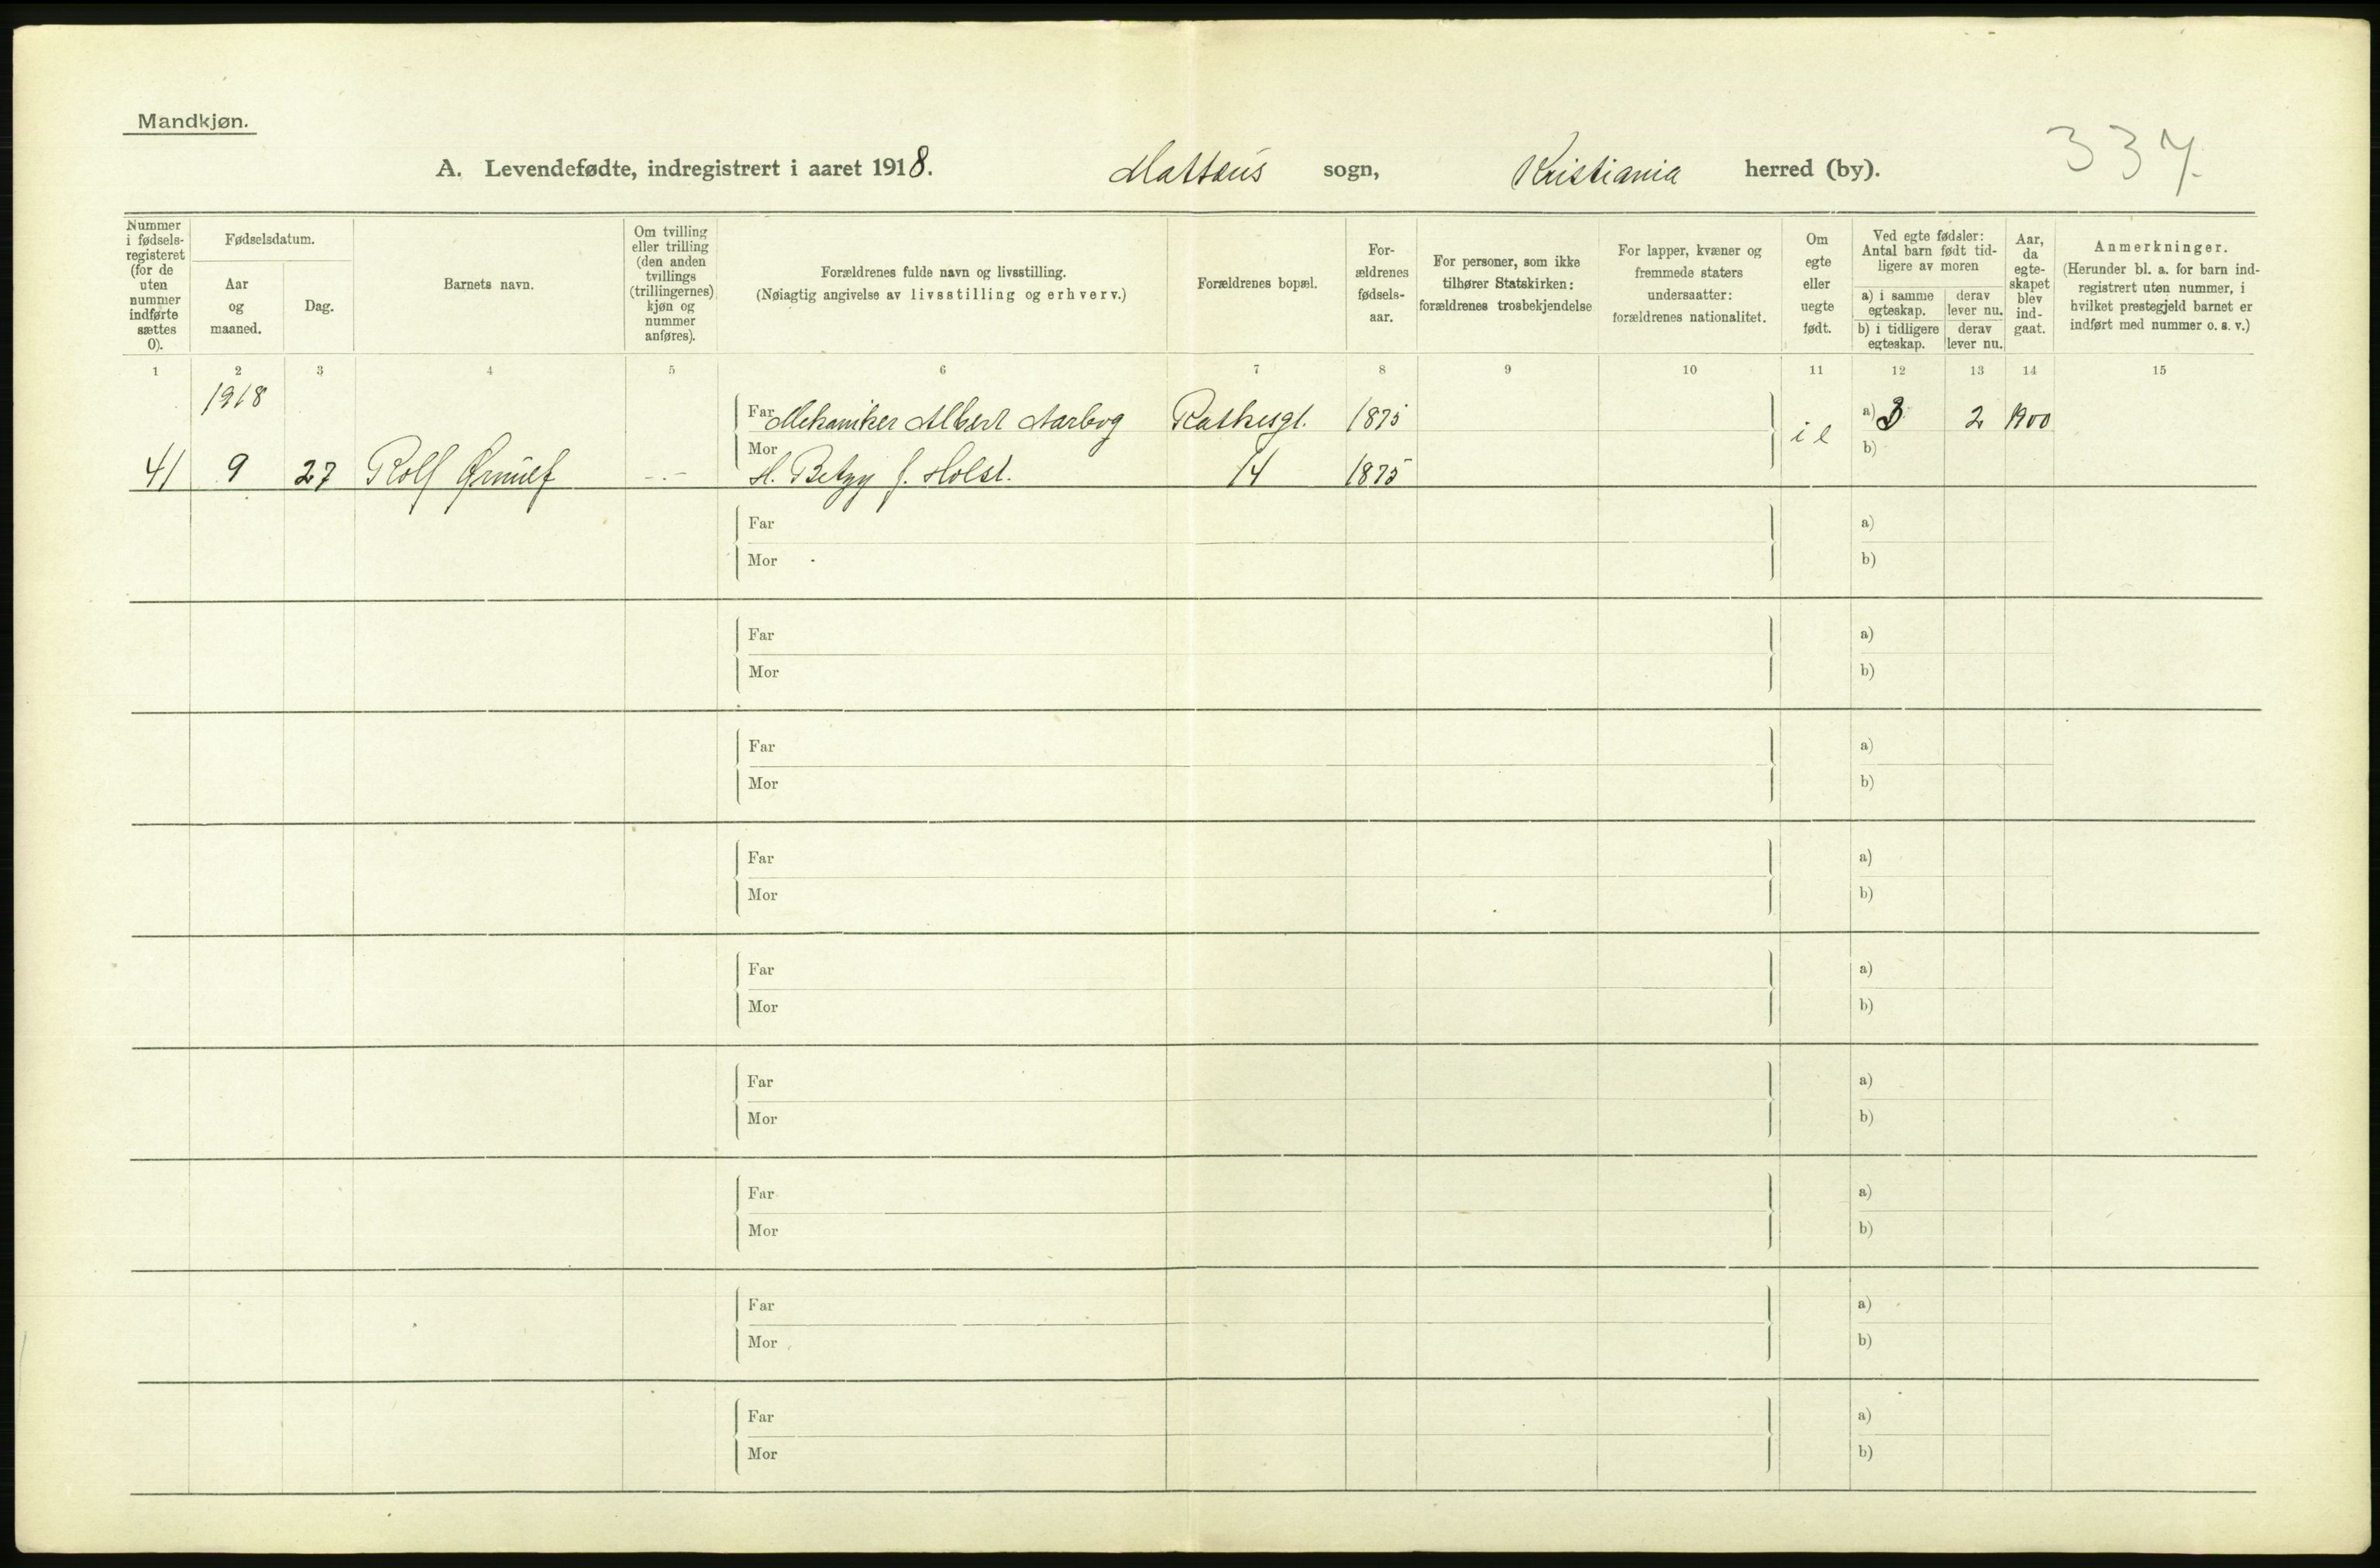 Mandkjøn.
A. Levendefødte, indregistrert i aaret 1918. Mattæus sogn, Kristiania herred (by). 337.
Nummer i fødsels-registeret (for de uten nummer indførte sættes 0).
Fødselsdatum.
Aar og maaned.
Dag.
Barnets navn.
Om tvilling eller trilling (den anden tvillings (trillingernes) kjøn og nummer anføres).
Forældrenes fulde navn og livsstilling.
(Nøiagtig angivelse av livsstilling og erhverv.)
Forældrenes bopæl.
For-ældrenes fødsels-aar.
For personer, som ikke tilhører Statskirken: forældrenes trosbekjendelse
For lapper, kvæner og fremmede staters undersaatter: forældrenes nationalitet.
Om egte eller uegte født.
Ved egte fødsler: Antal barn født tid-ligere av moren
a) i samme egteskap.
derav lever nu.
b) i tidligere egteskap.
derav lever nu.
Aar, da egte-skapet blev ind-gaat.
Anmerkninger.
(Herunder bl. a. for barn ind-registrert uten nummer, i hvilket prestegjeld barnet er indført med nummer o. s. v.)
1 2 3 4 5 6 7 8 9 10 11 12 13 14 15
1918
Far Mekaniker Albert Aarbog Rathesgt. 1875 a) 3 2 1900
Mor i e b)
41 9 27 Rolf Ørnulf -.- H. Betzy f. Holst. 14 1875
Far a)
Mor b)
Far a)
Mor b)
Far a)
Mor b)
Far a)
Mor b)
Far a)
Mor b)
Far a)
Mor b)
Far a)
Mor b)
Far a)
Mor b)
Far a)
Mor b)